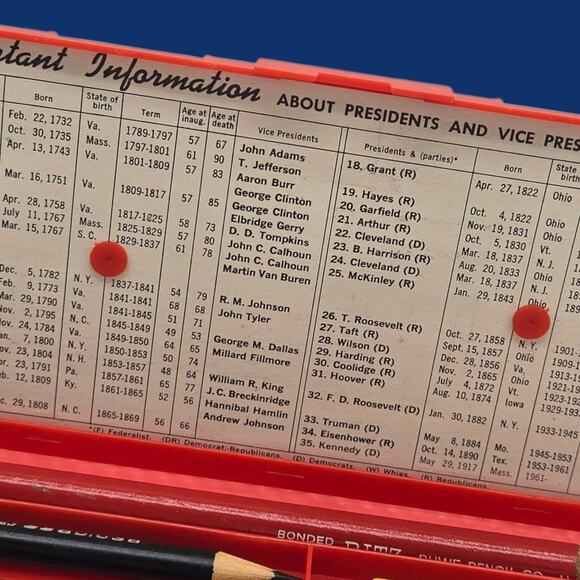 tant Information ABOUT PRESIDENTS AND VICE PRES
Born State of birth Term Age at inaug. Age at death Vice Presidents Presidents & (parties)* Born State birth
Feb. 22, 1732 Va. 1789-1797 57 67 John Adams 18. Grant (R) Apr. 27, 1822 Ohio
Oct. 30, 1735 Mass. 1797-1801 61 90 T. Jefferson
Apr. 13, 1743 Va. 1801-1809 57 83 Aaron Burr 19. Hayes (R) Oct. 4, 1822 Ohio
George Clinton 20. Garfield (R) Nov. 19, 1831 Ohio
Mar. 16, 1751 Va. 1809-1817 57 85 George Clinton 21. Arthur (R) Oct. 5, 1830 Vt.
Elbridge Gerry 22. Cleveland (D) Mar. 18, 1837 N. J.
Apr. 28, 1758 Va. 1817-1825 58 73 D. D. Tompkins 23. B. Harrison (R) Aug. 20, 1833 Ohio
July 11, 1767 Mass. 1825-1829 57 80 John C. Calhoun 24. Cleveland (D) Mar. 18, 1837 N. J.
Mar. 15, 1767 S. C. 1829-1837 61 78 John C. Calhoun 25. McKinley (R) Jan. 29, 1843 Ohio
Martin Van Buren
Dec. 5, 1782 N. Y. 1837-1841 54 79 R. M. Johnson 26. T. Roosevelt (R) Oct. 27, 1858 N. Y. 1901-
Feb. 9, 1773 Va. 1841-1841 68 68 John Tyler 27. Taft (R) Sept. 15, 1857 Ohio 1909-1
Mar. 29, 1790 Va. 1841-1845 51 71 28. Wilson (D) Dec. 28, 1856 Va. 1913-19
Nov. 2, 1795 N. C. 1845-1849 49 53 George M. Dallas 29. Harding (R) Nov. 2, 1865 Ohio 1921-19
Nov. 24, 1784 Va. 1849-1850 64 65 Millard Fillmore 30. Coolidge (R) July 4, 1872 Vt. 1923-192
Jan. 7, 1800 N. Y. 1850-1853 50 74 31. Hoover (R) Aug. 10, 1874 Iowa 1929-193
Nov. 23, 1804 N. H. 1853-1857 48 64 William R. King
Apr. 23, 1791 Pa. 1857-1861 65 77 J.C. Breckinridge 32. F. D. Roosevelt (D) Jan. 30, 1882 N. Y. 1933-1945
Feb. 12, 1809 Ky. 1861-1865 52 56 Hannibal Hamlin
Andrew Johnson 33. Truman (D) May 8, 1884 Mo. 1945-1953
Dec. 29, 1808 N. C. 1865-1869 56 66 34. Eisenhower (R) Oct. 14, 1890 Tex. 1953-1961
35. Kennedy (D) May 29, 1917 Mass. 1961-
*(F) Federalist. (DR) Democrat-Republicans. (D) Democrats. (W) Whigs. (R) Republicans
BONDED RITZ PENCIL CO.